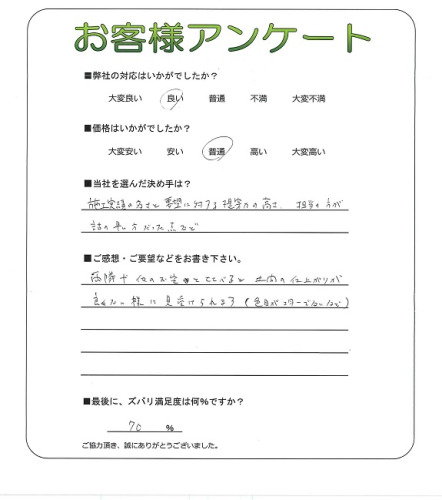 お客様アンケート
■弊社の対応はいかがでしたか？
大変良い 良い 普通 不満 大変不満
■価格はいかがでしたか？
大変安い 安い 普通 高い 大変高い
■当社を選んだ決め手は？
施工実績の多さと要望に対する提案力の高さ、担当の方が
話の早い方だった点など
■ご感想・ご要望などをお書き下さい。
のお宅とくらべると 仕上がりが
様に見受けられます（色目が
■最後に、ズバリ満足度は何％ですか？
70 ％
ご協力頂き、誠にありがとうございました。